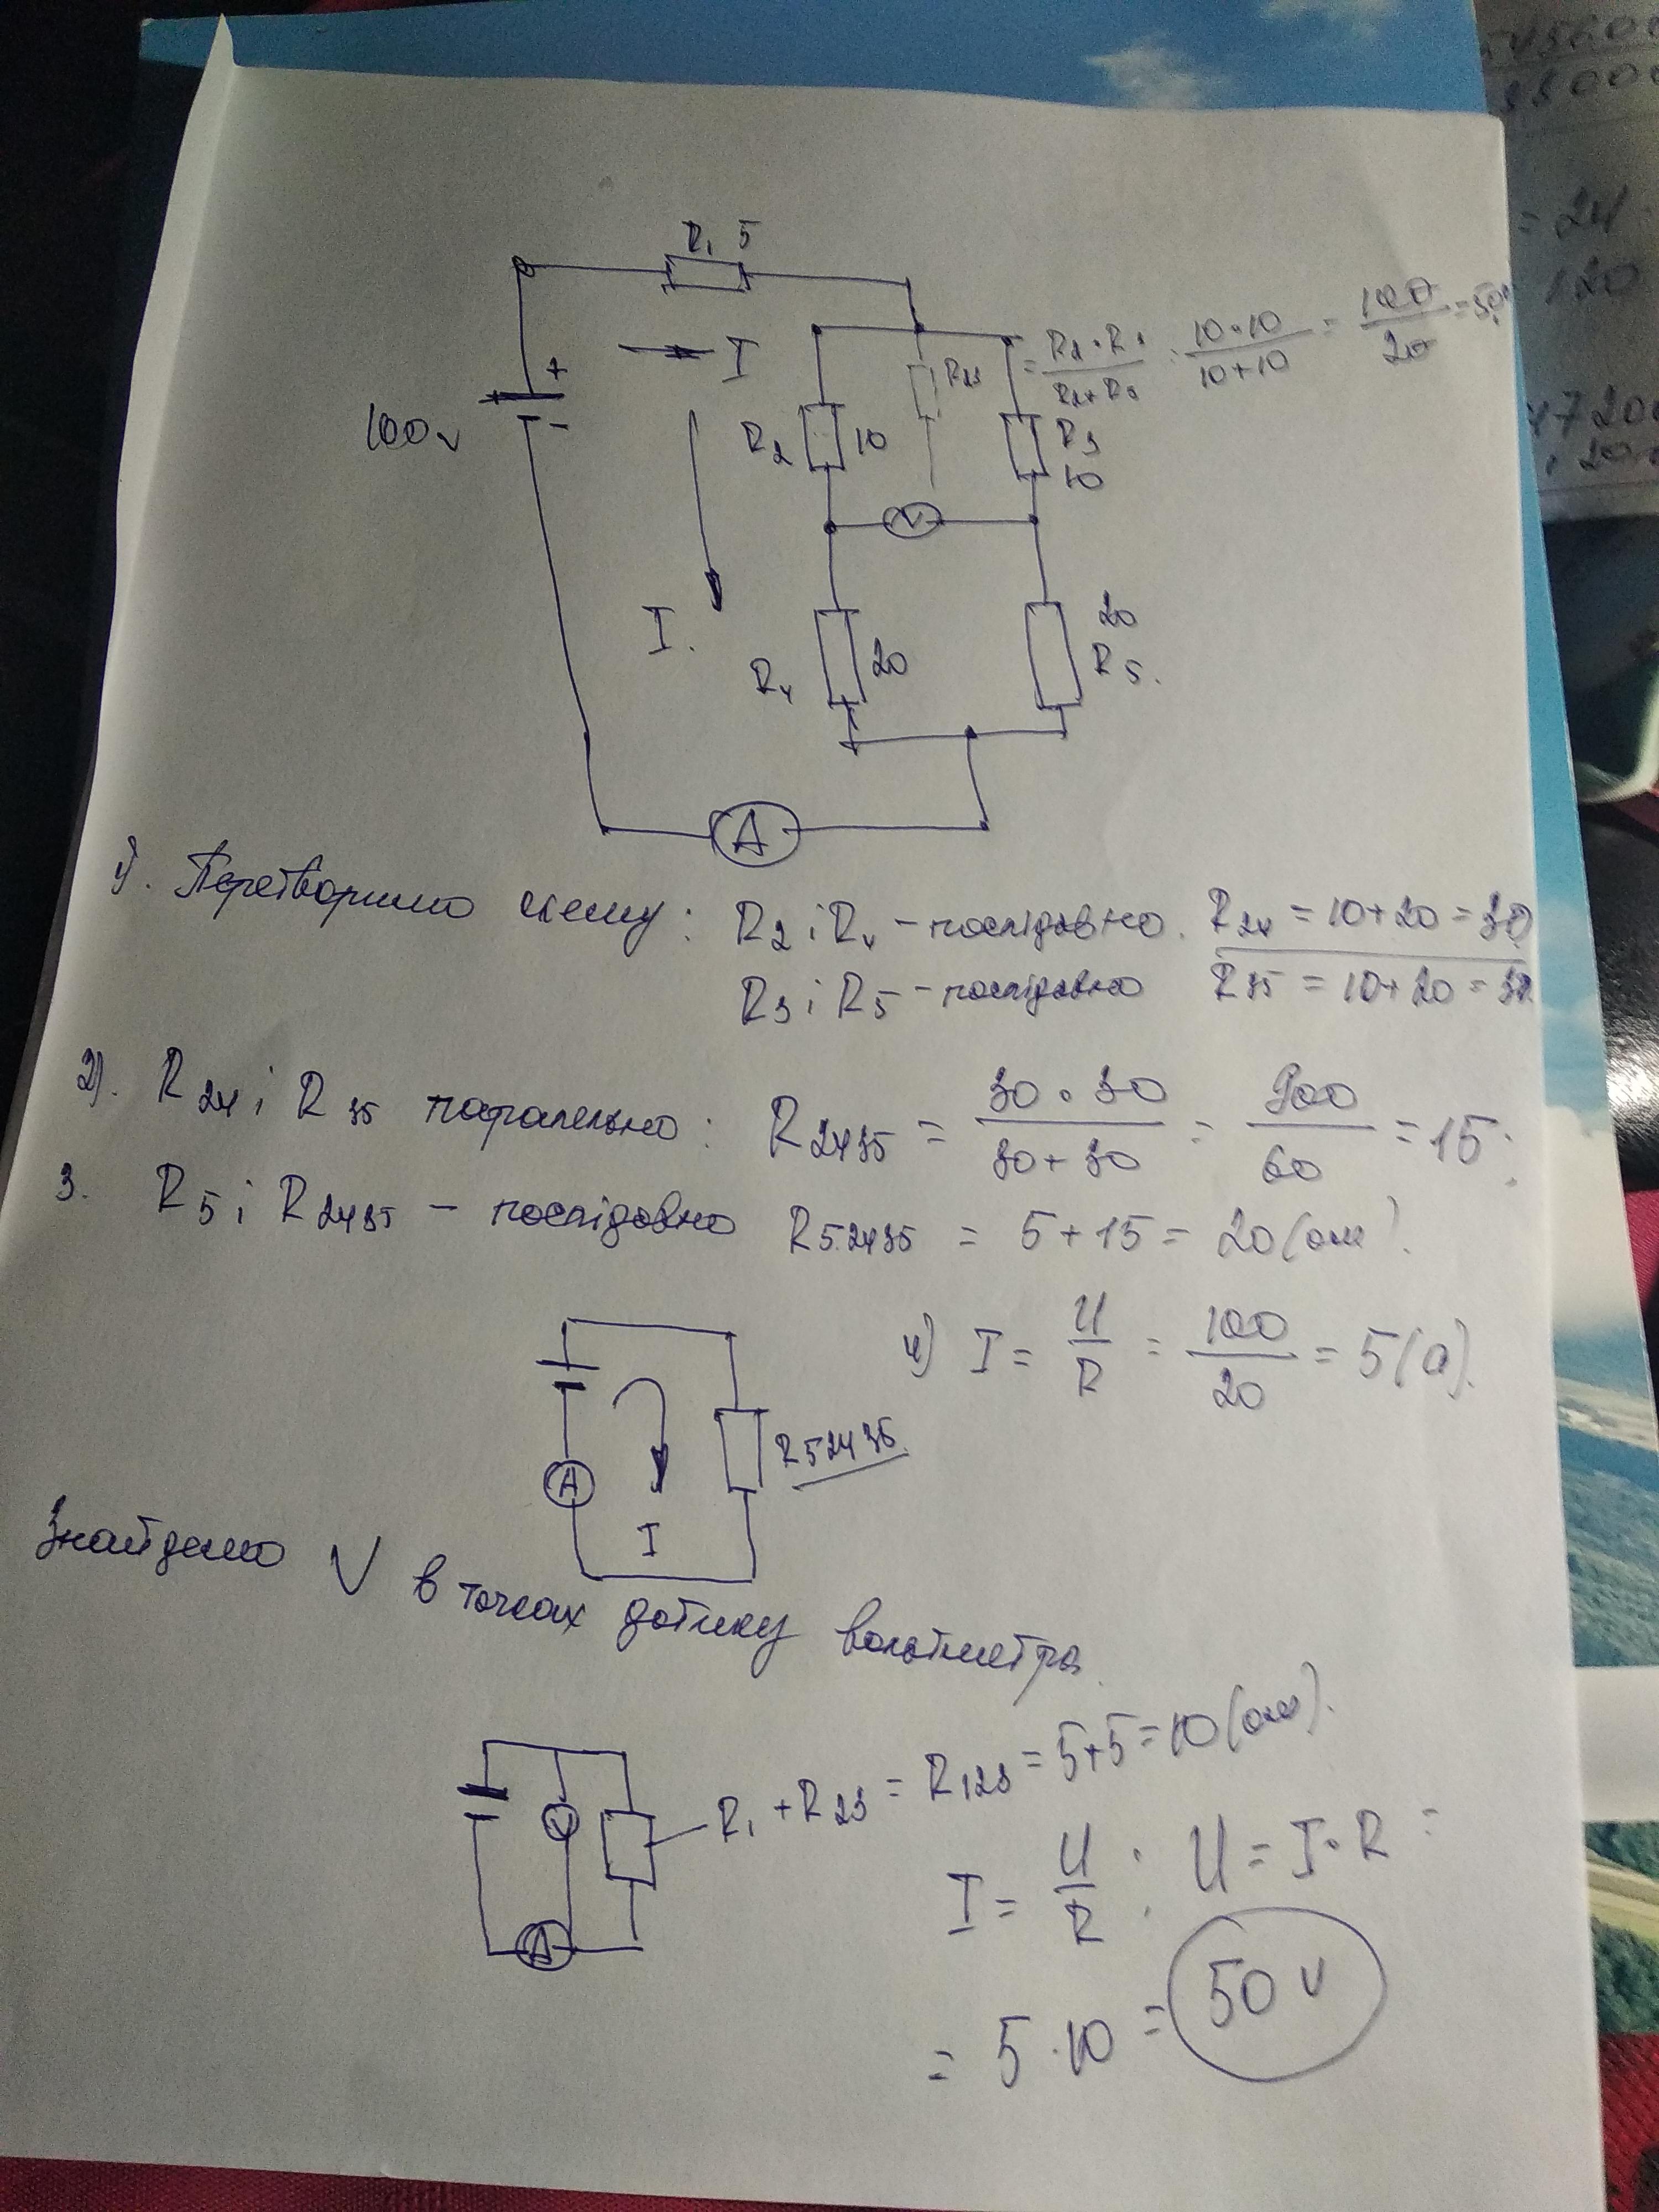 R₁ 5
+
I
-
100 v
R₂ 10
R₂₃ = R₂·R₃ / R₂+R₃ = 10·10 / 10+10 = 100 / 20 = 5
R₃
10
V
I.
R₄ 20
20
R₅.
A
1). Перетворимо схему: R₂ і R₄ - послідовно. R₂₄ = 10+20 = 30
R₃ і R₅ - послідовно R₃₅ = 10+20 = 30
2). R₂₄ і R₃₅ паралельно: R₂₄₃₅ = 30·30 / 30+30 = 900 / 60 = 15;
3. R₅ і R₂₄₃₅ - послідовно R₅.₂₄₃₅ = 5+15 = 20 (ом).
4) I = U / R = 100 / 20 = 5 (а).
A
I
R₅₂₄₃₅.
Знайдемо V в точках дотику вольтметра.
V
A
R₁ + R₂₃ = R₁₂₃ = 5+5 = 10 (ом).
I = U / R ; U = I·R =
= 5·10 = 50 v
= 24
120